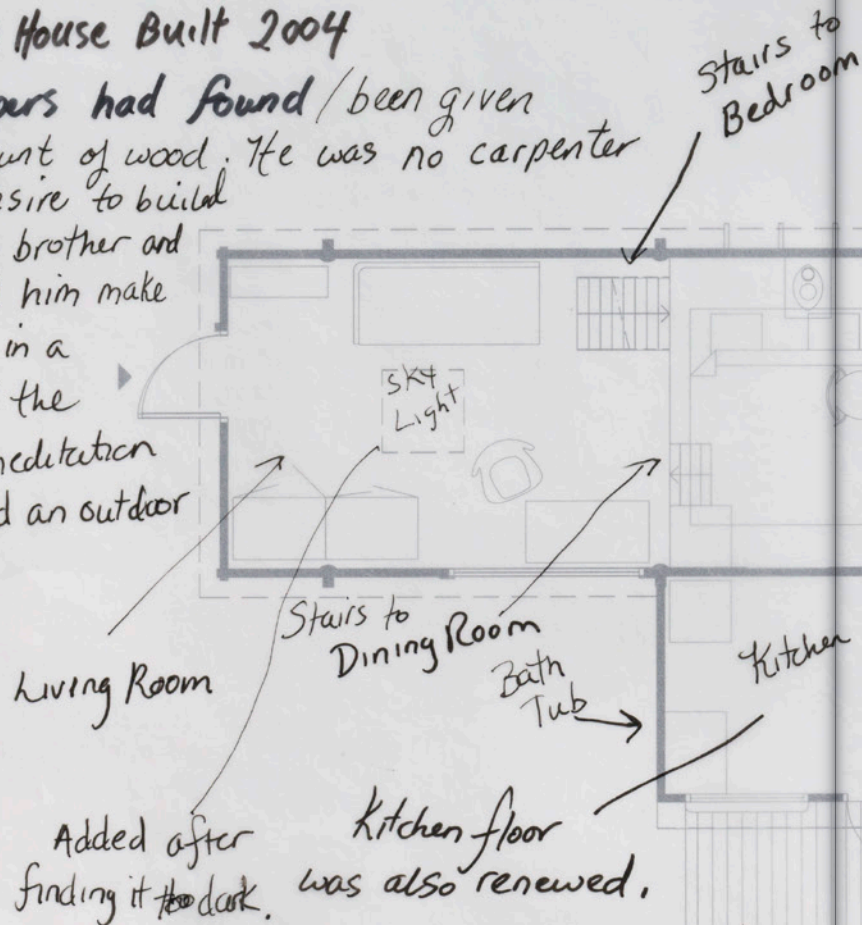 House Built 2004
ours had found / been given
unt of wood. He was no carpenter
esire to build
brother and
him make
in a
the
meditation
d an outdoor
Stairs to
Bedroom
Sky
Light
Living Room
Stairs to
Dining Room
Bath
Tub
Kitchen
Added after
finding it too dark.
Kitchen floor
was also renewed.